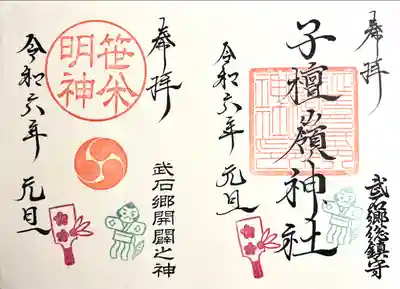 奉拝
子檀嶺神社
武石郷総鎮守
令和六年 元旦
奉拝
笹焼
明神
武石郷開闢之神
令和六年 元旦